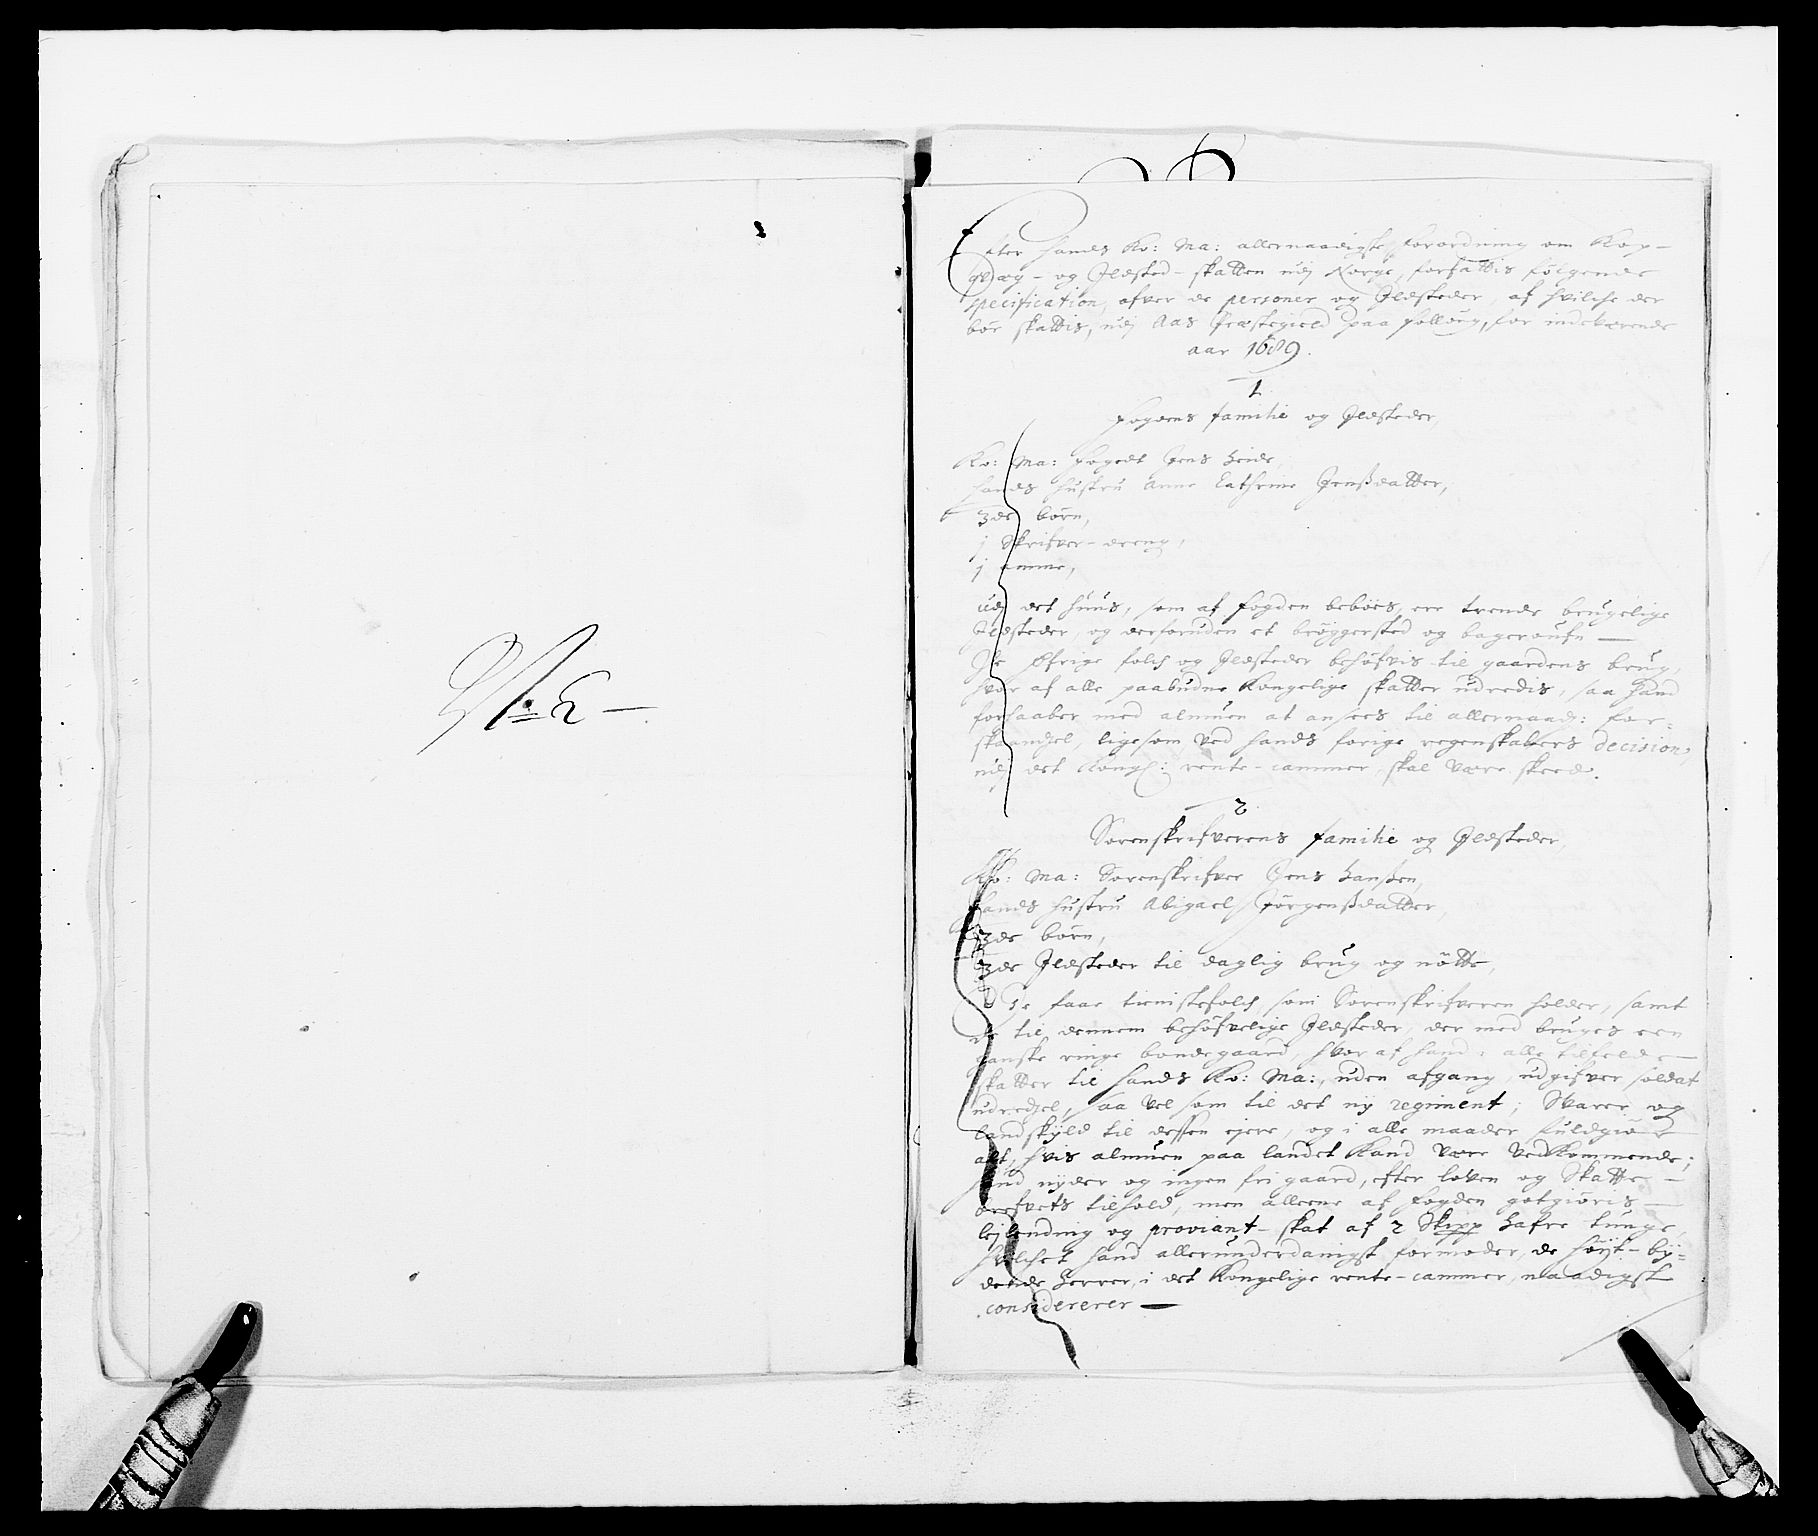 No 2
Efter hands Ko: Ma: allernaadigste forordning om Kop-
qvæg- og Ildsted-skatten udj Norge, forfattis følgende
specification, ofver de personer og Ildsteder, af hvilche der
bör skattis, udj Aas Præstegield paa Folloug, for indeværende
aar 1689.
1
Fogdens familie og Ildsteder,
Ko: Ma: Fogedt Jens
hands hustru Anne Cathrine Jenßdatter,
3de börn,
j Skrifver-dreng,
j amme,
Udj det huus, som af fogden beböes, ere trende brugelige
Ildsteder, og derforuden et bröggersted og bageroufn —
De öfrige folch og Ildsteder behöfvis til gaardens brug,
hvor af alle paabudne Kongelige skatter udredis, saa hand
forhaaber med almuen at ansees til allernaad: for-
skaandsel, ligesom ved hands forige regenskabers decision,
udj det Kongl: rente-cammer, skal være skeed.
2
Sorenskrifverens familie og Ildsteder,
Ko: Ma: Sorenskrifver Jens Hanßen,
hands hustru Abigael Jörgenßdatter,
3de börn,
3de Ildsteder til daglig brug og nötte,
De faae tienistefolch, som Sorenskrifveren holder, samt
de til dennem behöfvelige Ildsteder, der med bruges een
ganske ringe bondegaard, hvor af hand alle tilfelde
skatter til hands Ko: Ma:, uden afgang, udgifver soldat
udredsel, saa vel som til det ny regiment; Svarer og
landskyld til dessen ejere, og i alle maader fuldgiöre
alt, hvis almuen paa landet kand være vedkommende;
hand nyder og ingen fri gaard, efter loven og Skatte-
brefvets tilhold, men alleene af fogden gotgiöris
lejlending og proviant-skat af 2 Skipp hafre tunge,
hvilchet hand allerunderdanigst formoder, de höyt-by-
dende Herrer, i det Kongelige rente-cammer, naadigst
considererer —